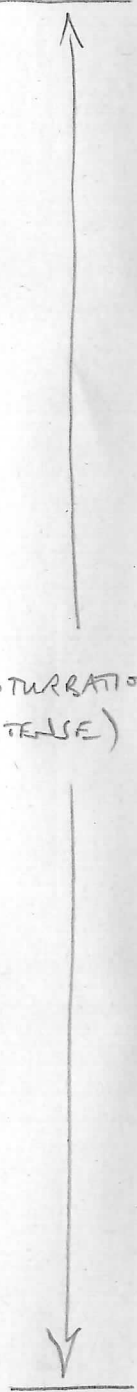 OTURBATIO
TENSE)